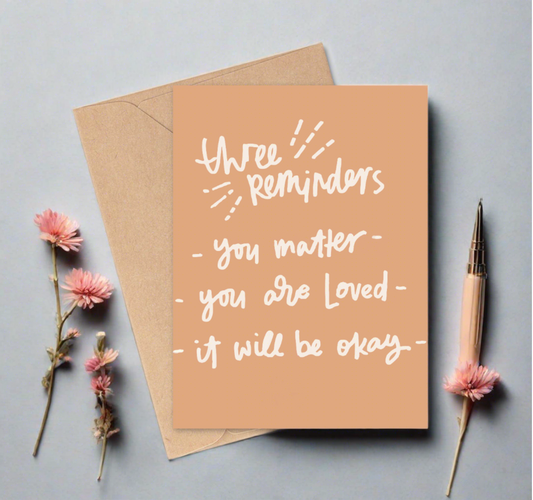 three
Reminders
- you matter -
- you are Loved -
- it will be okay -